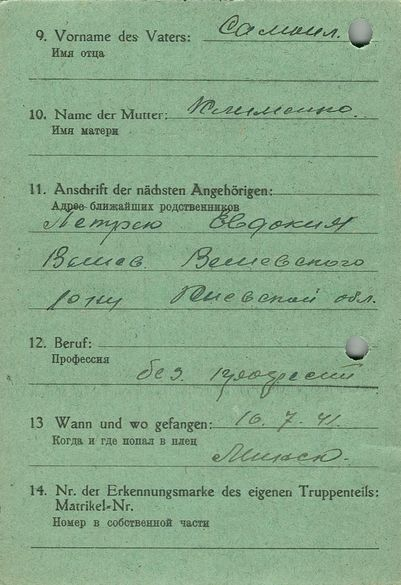 9. Vorname des Vaters: Самоил.
Имя отца
10. Name der Mutter: Клименко.
Имя матери
11. Anschrift der nächsten Angehörigen:
Адрес ближайших родственников
Евдокия
Киевской обл.
12. Beruf:
Профессия
без професии
13 Wann und wo gefangen: 16. 7. 41.
Когда и где попал в плен
Минск.
14. Nr. der Erkennungsmarke des eigenen Truppenteils:
Matrikel-Nr.
Номер в собственной части